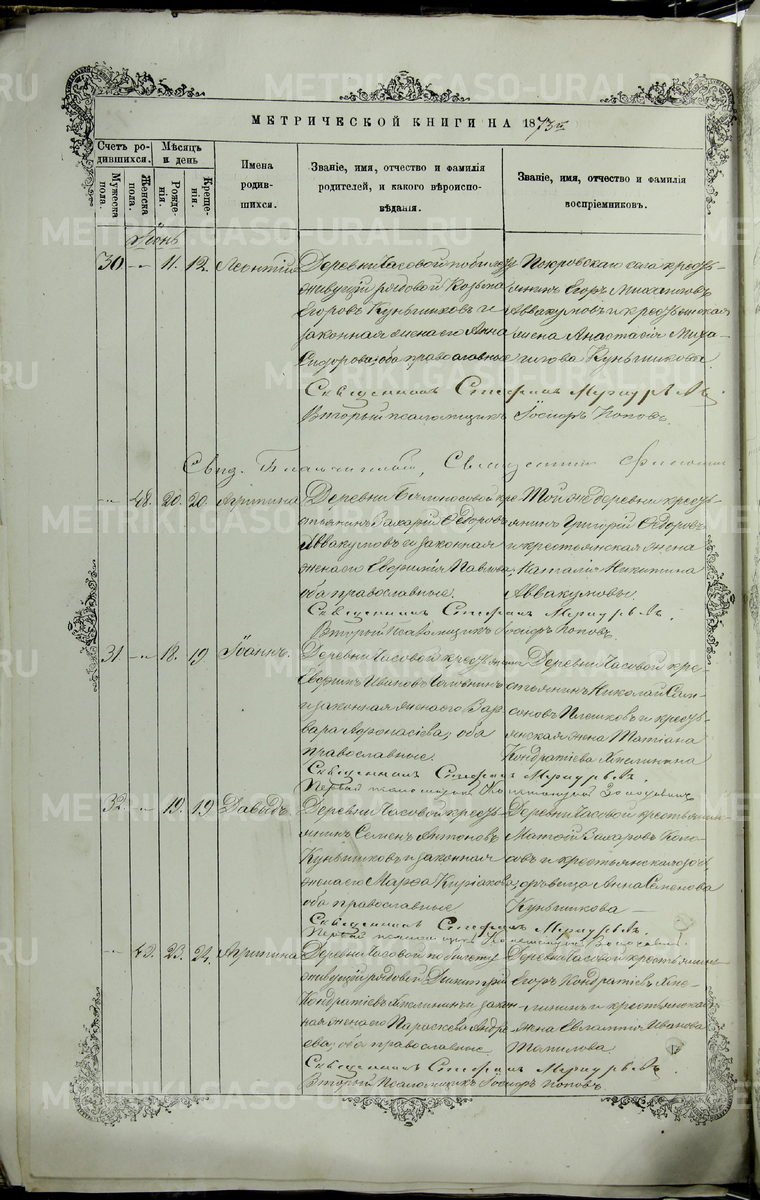 МЕТРИЧЕСКОЙ КНИГИ НА 1873
Счетъ родившихся.
Мужеска пола.
Женска пола.
Мѣсяцъ и день
Рожденія.
Крещенія.
Имена родившихся.
Званіе, имя, отчество и фамилія
родителей, и какого вѣроиспо-
вѣданія.
Званіе, имя, отчество и фамилія
воспріемниковъ.
Іюнь
30 — 11. 12. Леонтій
Деревни Часовой по билету
живущій рядовой Козьма
Егоровъ Куньщиковъ и
законная жена его Анна
Сидорова, оба православные
Покровскаго села кресть-
янинъ Егоръ
Аввакумовъ и крестьянская
жена Анастасія Миха-
Куньщикова.
Священникъ Стефанъ
Вторый псаломщикъ Іосифъ Поповъ.
Священникъ
— 48. 20. 20. Агрипина
Деревни кре-
стьянинъ Захарій Ѳедоровъ
Аввакумовъ и законная
жена его Евфимія Павлова,
оба православные.
Той же деревни кресть-
янинъ Григорій Ѳедоровъ
и крестьянская жена
Наталія Никитина
Аввакумовы.
Священникъ Стефанъ
Вторый Псаломщикъ Іосифъ Поповъ.
31. — 18. 19 Іоаннъ.
Деревни Часовой
Ивановъ
и законная жена его Вар-
вара Афонасіева, оба
православные.
Деревни Часовой кре-
стьянинъ Николай
и кресть-
янская жена Татіана
Кондратіева Хмелинина
Священникъ Стефанъ
Первый псаломщикъ
32. — 19. 19 Давыдъ
Деревни Часовой кресть-
янинъ Семенъ Антоновъ
Куньщиковъ и законная
жена его Марѳа Киріакова,
оба православные
Деревни Часовой крестьянинъ
Матѳей Захаровъ
и крестьянская
Анна Семенова
Куньщикова —
Священникъ Стефанъ
Первый псаломщикъ
— 49. 23. 24. Агрипина
Деревни Часовой по билету
живущій рядовой Димитрій
Кондратіевъ Хмелининъ и закон-
ная жена его Параскева Андре-
ева, оба православные
Деревни Часовой крестьянинъ
Егоръ Кондратіевъ Хме-
лининъ и крестьянская
жена Евлампія Иванова
Томилова
Священникъ Стефанъ
Вторый Псаломщикъ Іосифъ Поповъ
METRIKI.GASO-URAL.RU